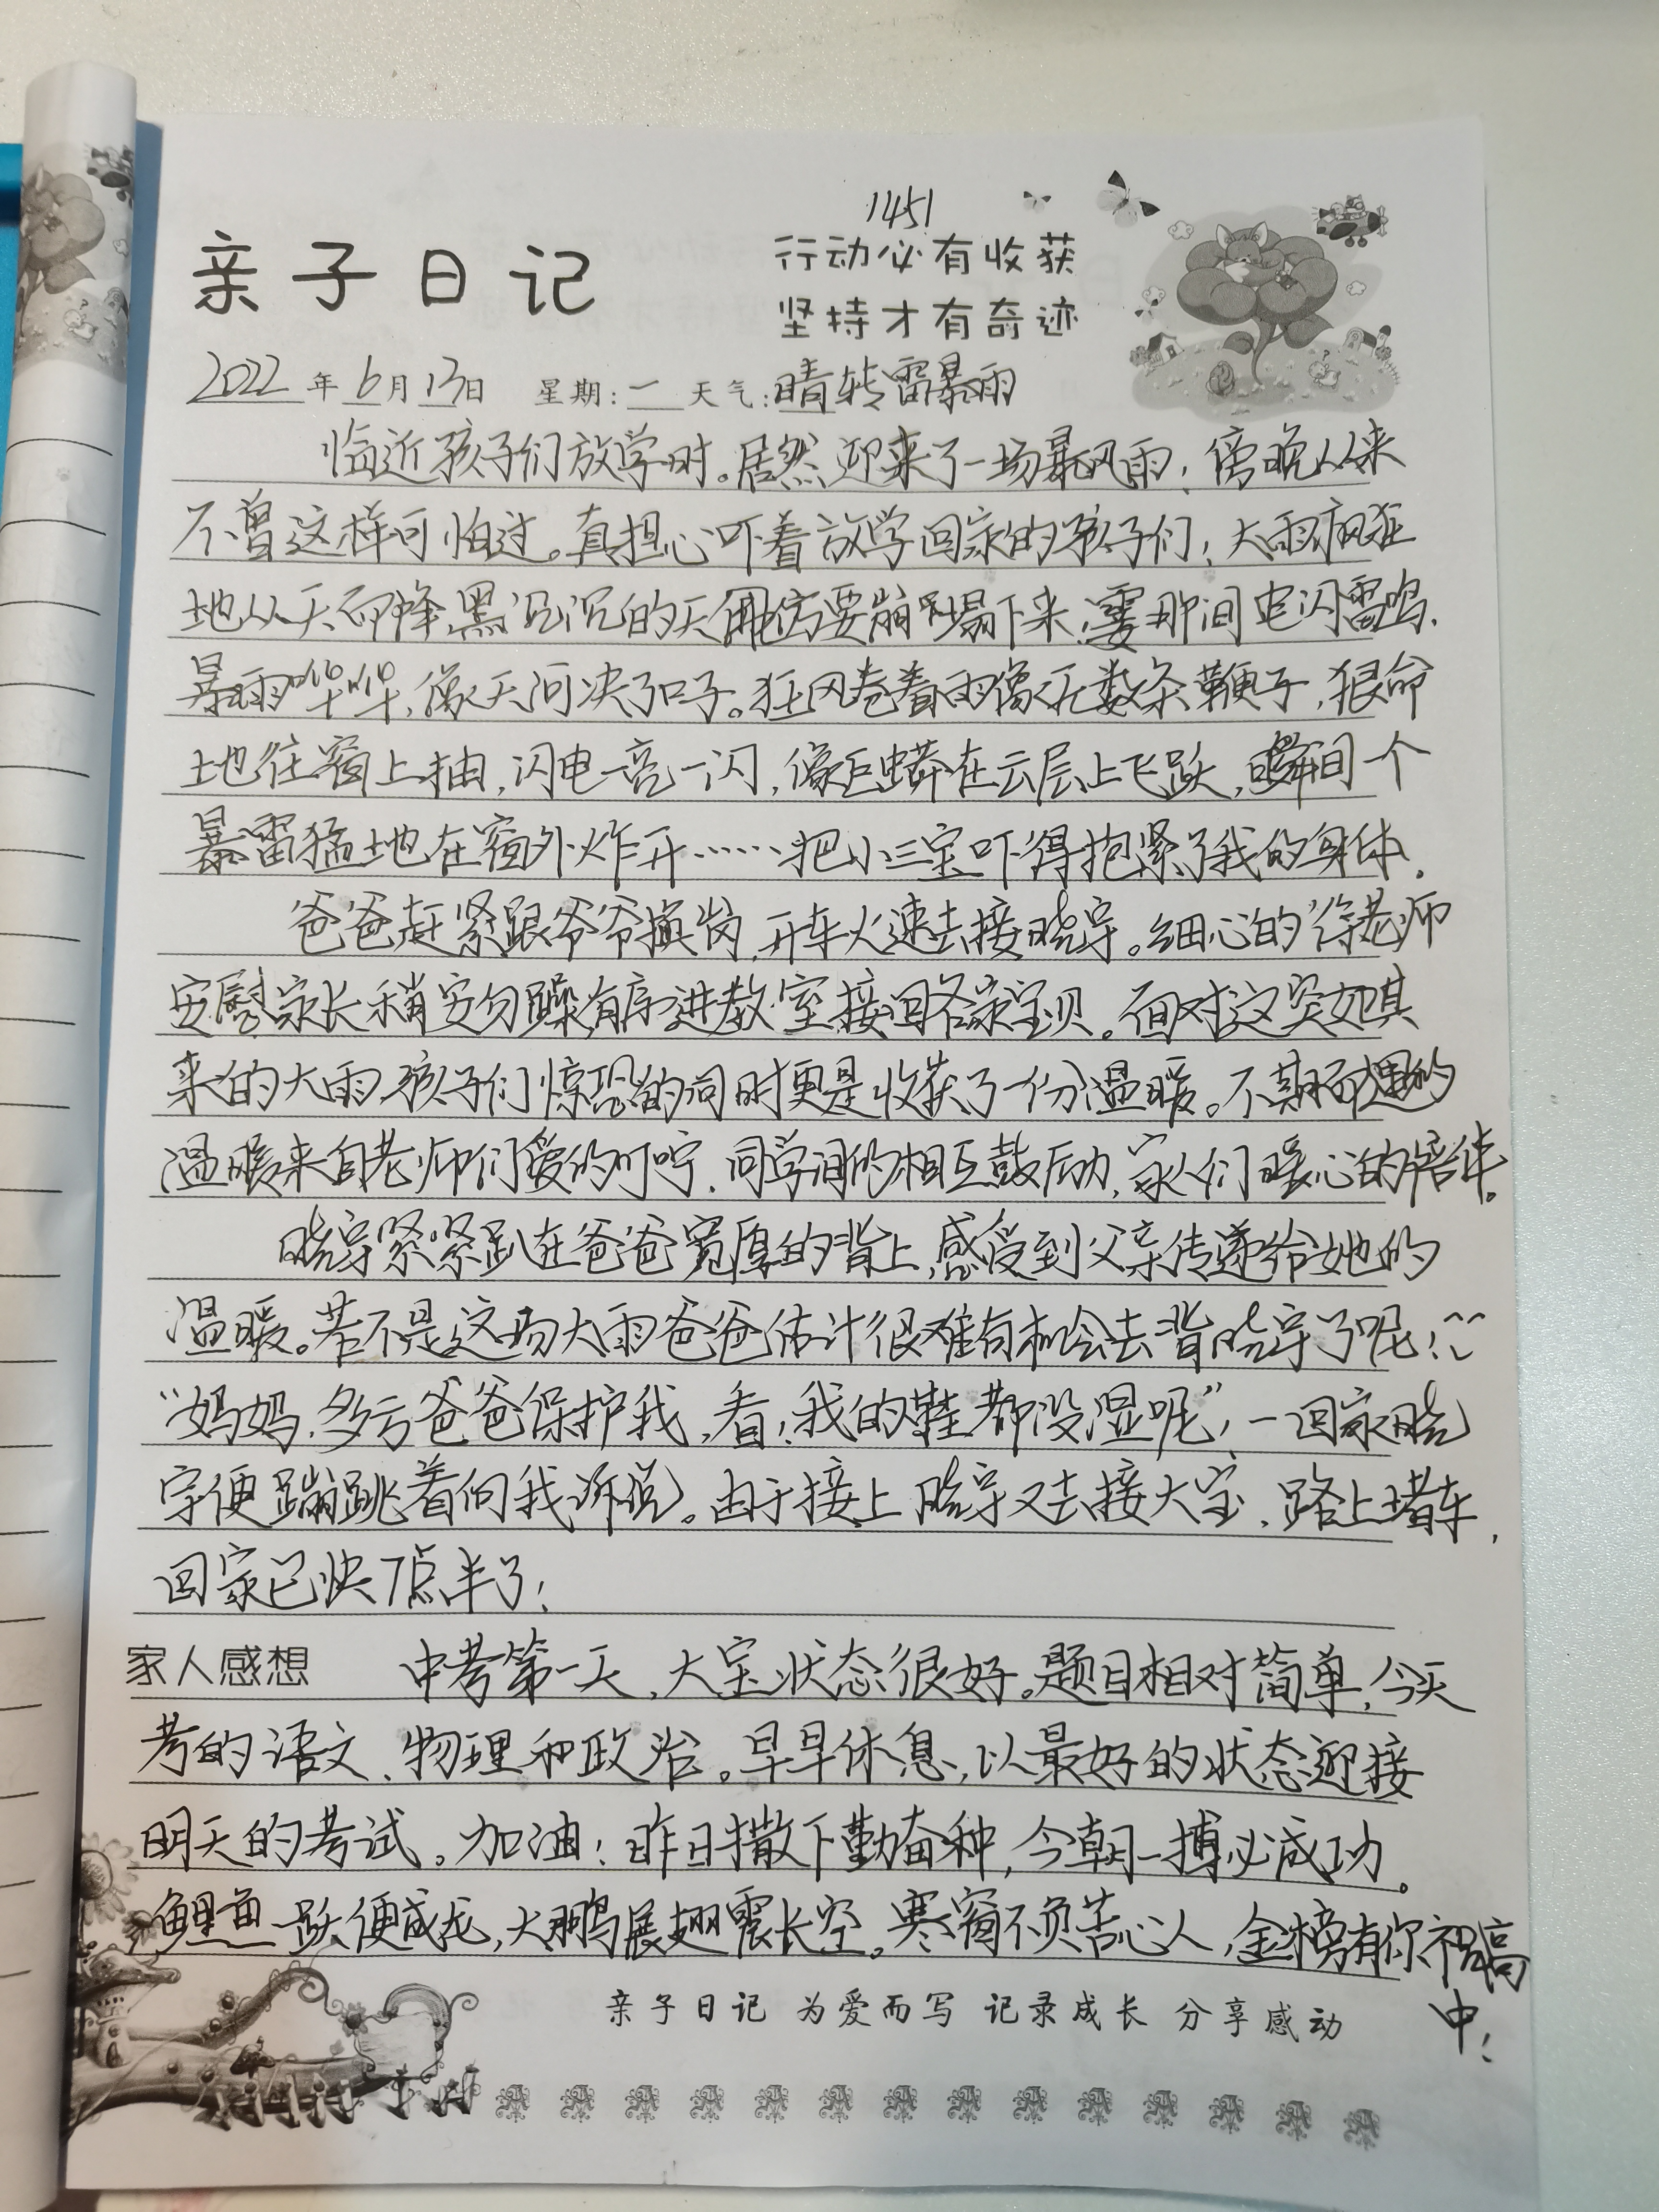 1451
亲子日记
行动必有收获
坚持才有奇迹
2022年6月13日 星期:一 天气:晴转雷暴雨
临近孩子们放学时。居然迎来了一场暴风雨!傍晚从来
不曾这样可怕过。真担心吓着放学回家的孩子们!大雨疯狂
地从天而降,黑沉沉的天仿佛要崩塌下来!霎那间电闪雷鸣,
暴雨哗哗,像天河决了口子。狂风卷着雨像无数条鞭子,狠命
地往窗上抽,闪电一亮一闪,像巨蟒在云层上飞跃,瞬间一个
暴雷猛地在窗外炸开……把小三宝吓得抱紧了我的身体。
爸爸赶紧跟爷爷换岗,开车火速去接晓宇。细心的徐老师
安慰家长稍安勿躁,有序进教室接回各家宝贝。面对这突如其
来的大雨,孩子们惊恐的同时更是收获了一份温暖。不期而遇的
温暖来自老师们爱的叮咛,同学间的相互鼓励,家人们暖心的陪伴。
晓宇紧紧趴在爸爸宽厚的背上,感受到父亲传递给她的
温暖。若不是这场大雨爸爸估计很难有机会去背晓宇了呢!
“妈妈,多亏爸爸保护我,看!我的鞋都没湿呢”!一回家晓
宇便蹦跳着向我诉说。由于接上晓宇又去接大宝,路上堵车,
回家已快7点半了!
家人感想 中考第一天,大宝状态很好。题目相对简单,今天
考的语文、物理和政治。早早休息,以最好的状态迎接
明天的考试。加油!昨日撒下勤奋种,今朝一搏必成功。
鲤鱼一跃便成龙,大鹏展翅震长空。寒窗不负苦心人,金榜有你祝高
中!
亲子日记 为爱而写 记录成长 分享感动